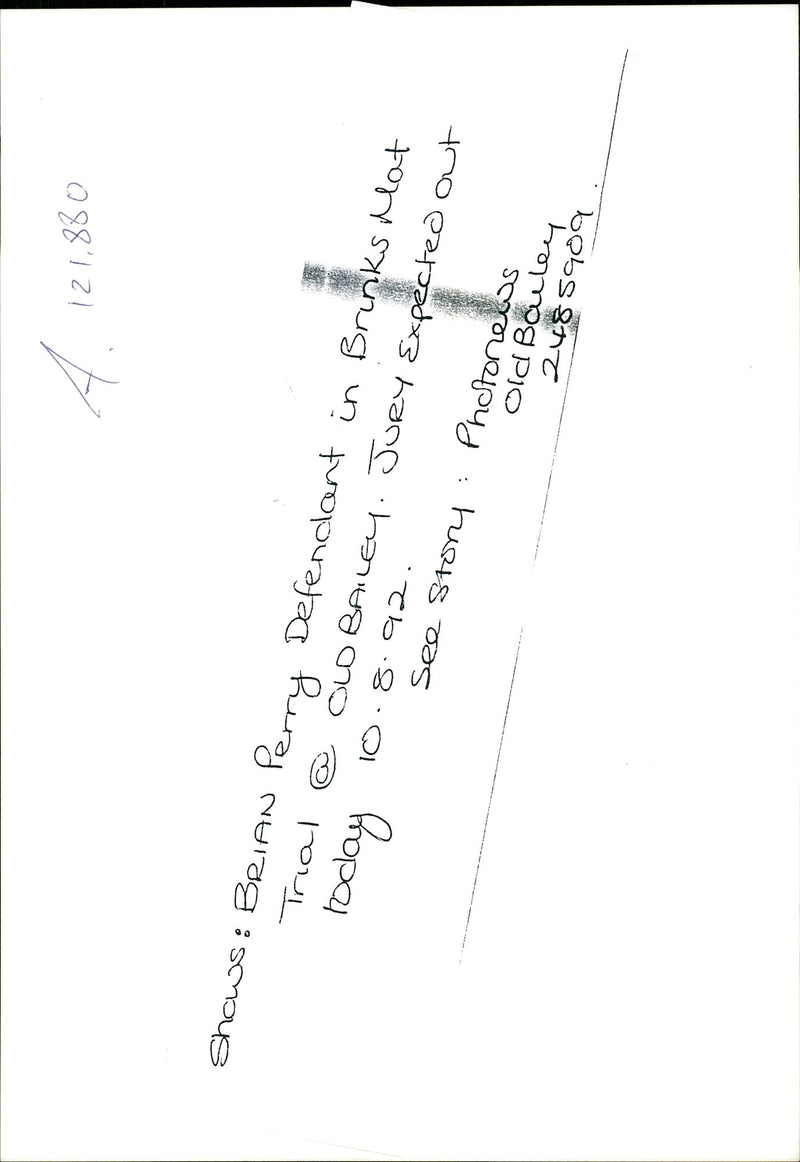 A. 121.880
Shows: BRIAN Perry Defendant in Brinks Mat
Trial @ OLD BAILEY. JURY Expected out
today 10.8.92.
See Story: Photonews
Old Bailey
2485909.